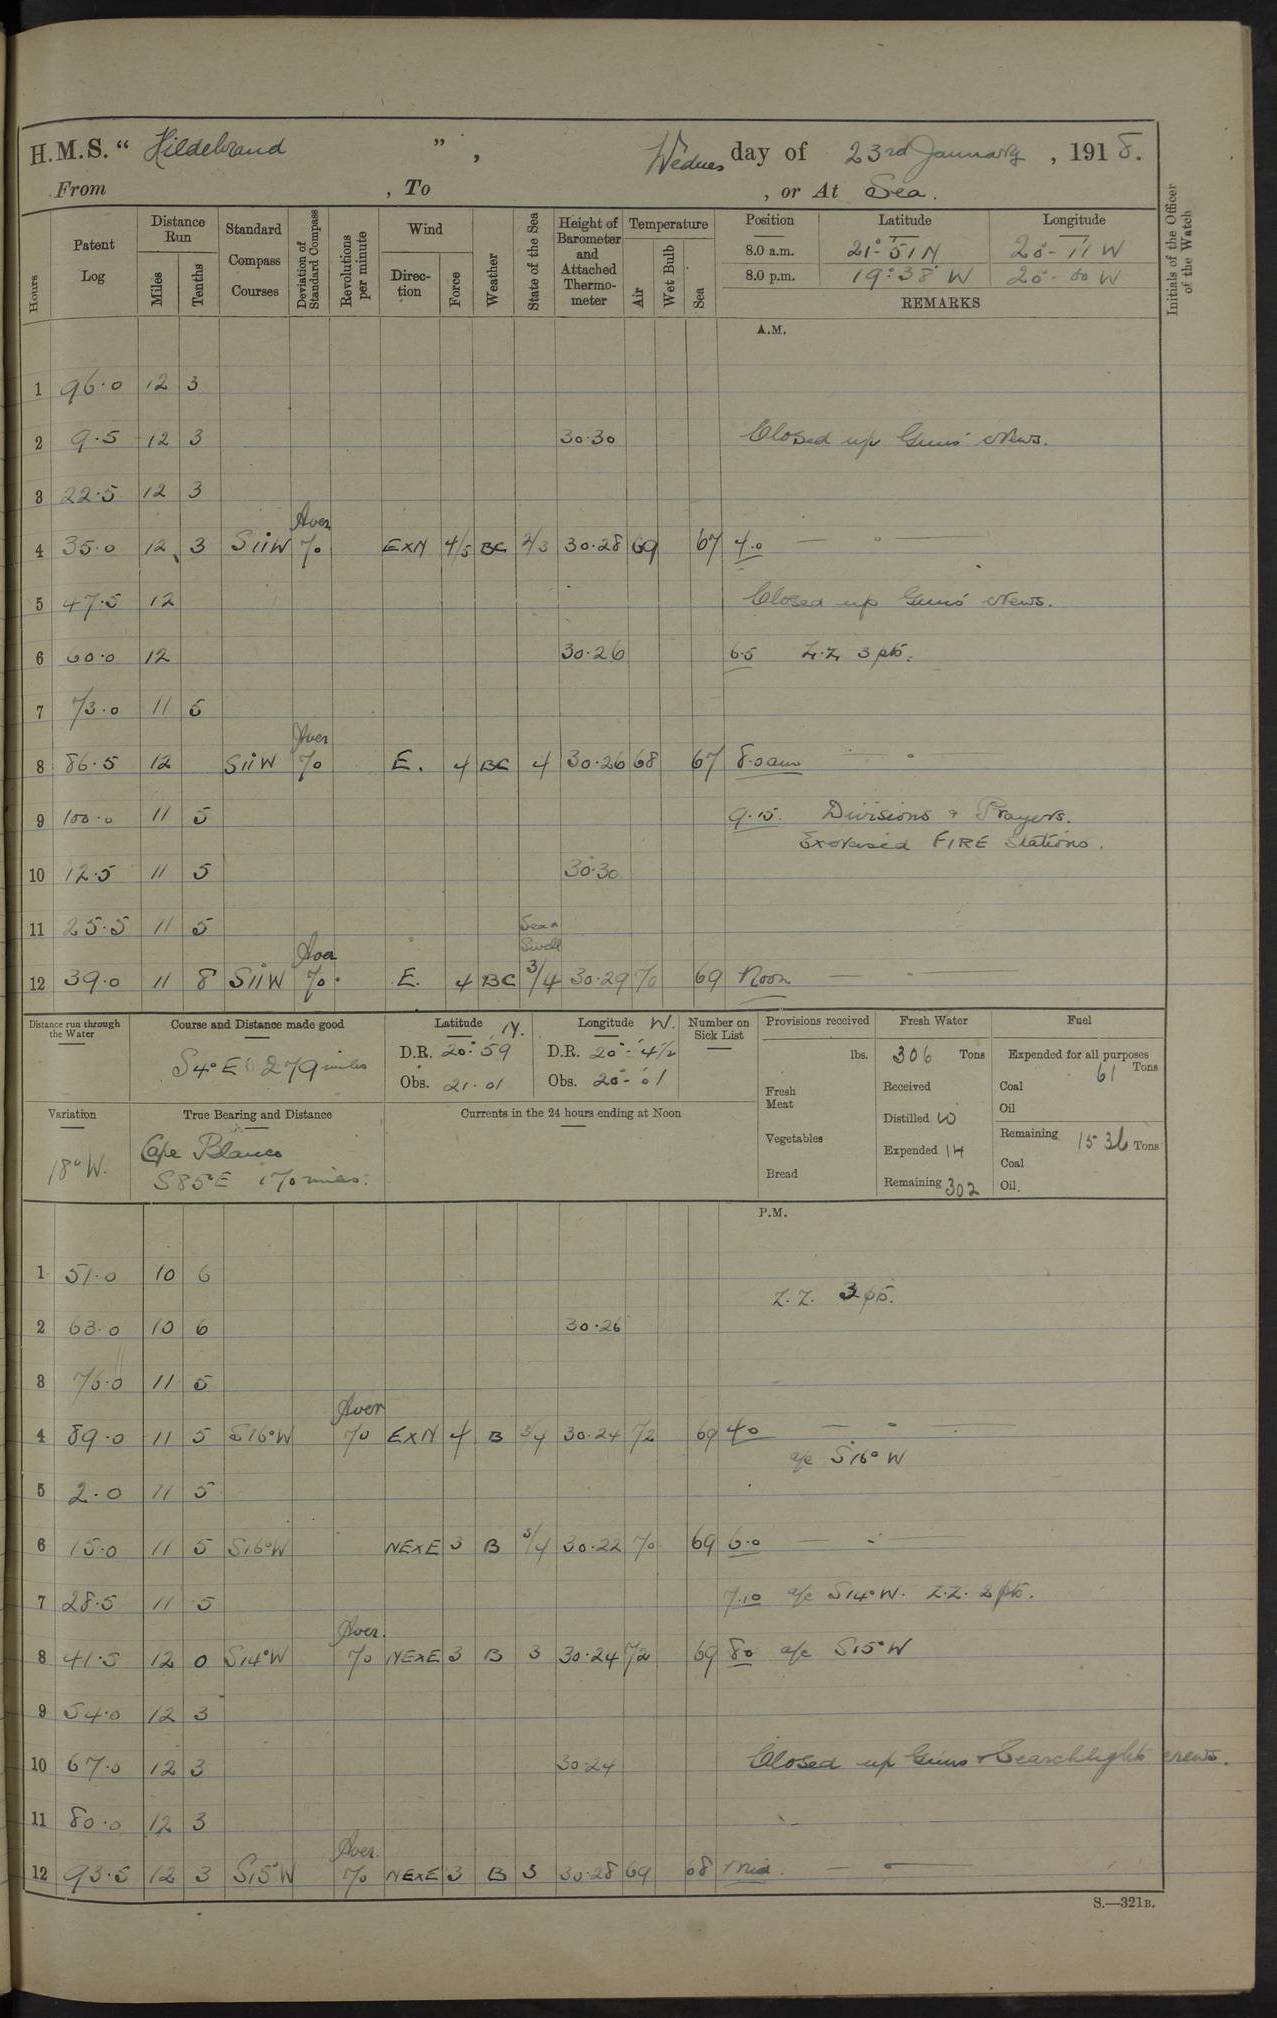 H.M.S. “ Hildebrand ” , Wednes day of 23rd January , 1918.
From , To , or At Sea.
Hours
Patent Log
Distance Run
Miles
Tenths
Standard Compass Courses
Deviation of Standard Compass
Revolutions per minute
Wind
Direction
Force
Weather
State of the Sea
Height of Barometer and Attached Thermometer
Temperature
Air
Wet Bulb
Sea
Position Latitude Longitude
8.0 a.m. 21°-51 N 20°-11 W
8.0 p.m. 19°-38' W 20°-00 W
REMARKS
Initials of the Officer of the Watch
A.M.
1 96.0 12 3
2 9.5 12 3 30.30 Closed up Guns' crews.
3 22.5 12 3
Aver
4 35.0 12 3 S11W 70 ExN 4/5 BC 2/3 30.28 69 67 4.0
5 47.5 12 Closed up Guns' crews.
6 60.0 12 30.26 6.5 Z.Z 3 pts.
7 73.0 11 5
Aver
8 86.5 12 S11W 70 E. 4 BC 4 30.26 68 67 8.0am
9 100.0 11 5 9.15. Divisions & Prayers.
Exercised FIRE Stations.
10 12.5 11 5 30.30
11 25.5 11 5 Sea & Swell
Aver
12 39.0 11 8 S11W 70. E. 4 BC 3/4 30.29 70 69 Noon
Distance run through the Water
Course and Distance made good
S4°E 279 miles
Latitude N.
D.R. 20°.59
Obs. 21.01
Longitude W.
D.R. 20°-'4½
Obs. 20°-'01
Number on Sick List
Provisions received
lbs.
Fresh Meat
Vegetables
Bread
Fresh Water
306 Tons
Received
Distilled 10
Expended 14
Remaining 302
Fuel
Expended for all purposes
61 Tons
Coal
Oil
Remaining 1536 Tons
Coal
Oil.
Variation
18°W.
True Bearing and Distance
Cape Blanco
S85°E 170 miles.
Currents in the 24 hours ending at Noon
P.M.
1 51.0 10 6
Z.Z. 3 pts.
2 63.0 10 6 30.26
3 76.0 11 5
Aver
4 89.0 11 5 S16°W 70 ExN 4 B 3/4 30.24 72 69 4.0
a/c S16°W
5 2.0 11 5
6 15.0 11 5 S16°W NExE 3 B 3/4 30.22 70 69 6.0
7 28.5 11 5 7.10 a/c S14°W. Z.Z. 2 pts.
Aver.
8 41.5 12 0 S14°W 70 NExE 3 B 3 30.24 72 69 8.0 a/c S15°W
9 54.0 12 3
10 67.0 12 3 30.24 Closed up Guns & Searchlights crews.
11 80.0 12 3
Aver.
12 93.5 12 3 S15°W 70 NExE 3 B 3 30.28 69 68 Mid.
S.—321B.